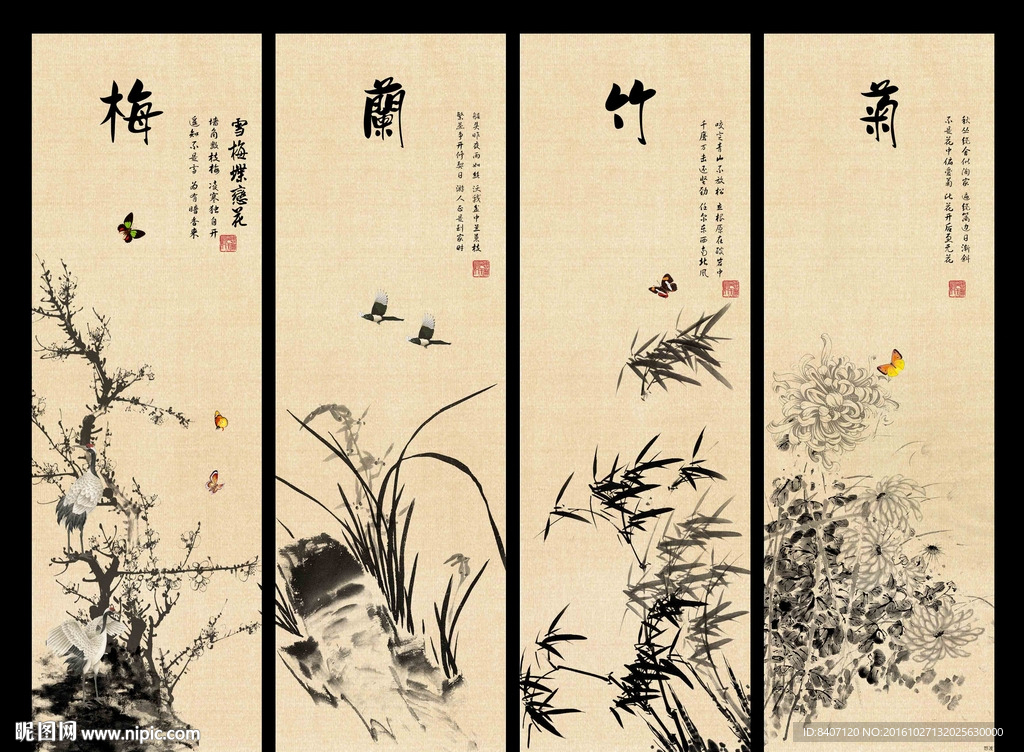 梅
雪梅蝶戀花
墙角数枝梅 凌寒独自开
遥知不是雪 为有暗香来
蘭
竹
咬定青山不放松 立根原在破岩中
千磨万击还坚劲 任尔东西南北风
菊
秋丛绕舍似陶家 遍绕篱边日渐斜
不是花中偏爱菊 此花开后更无花
昵图网 www.nipic.com
ID:8407120 NO:20161027132025630000